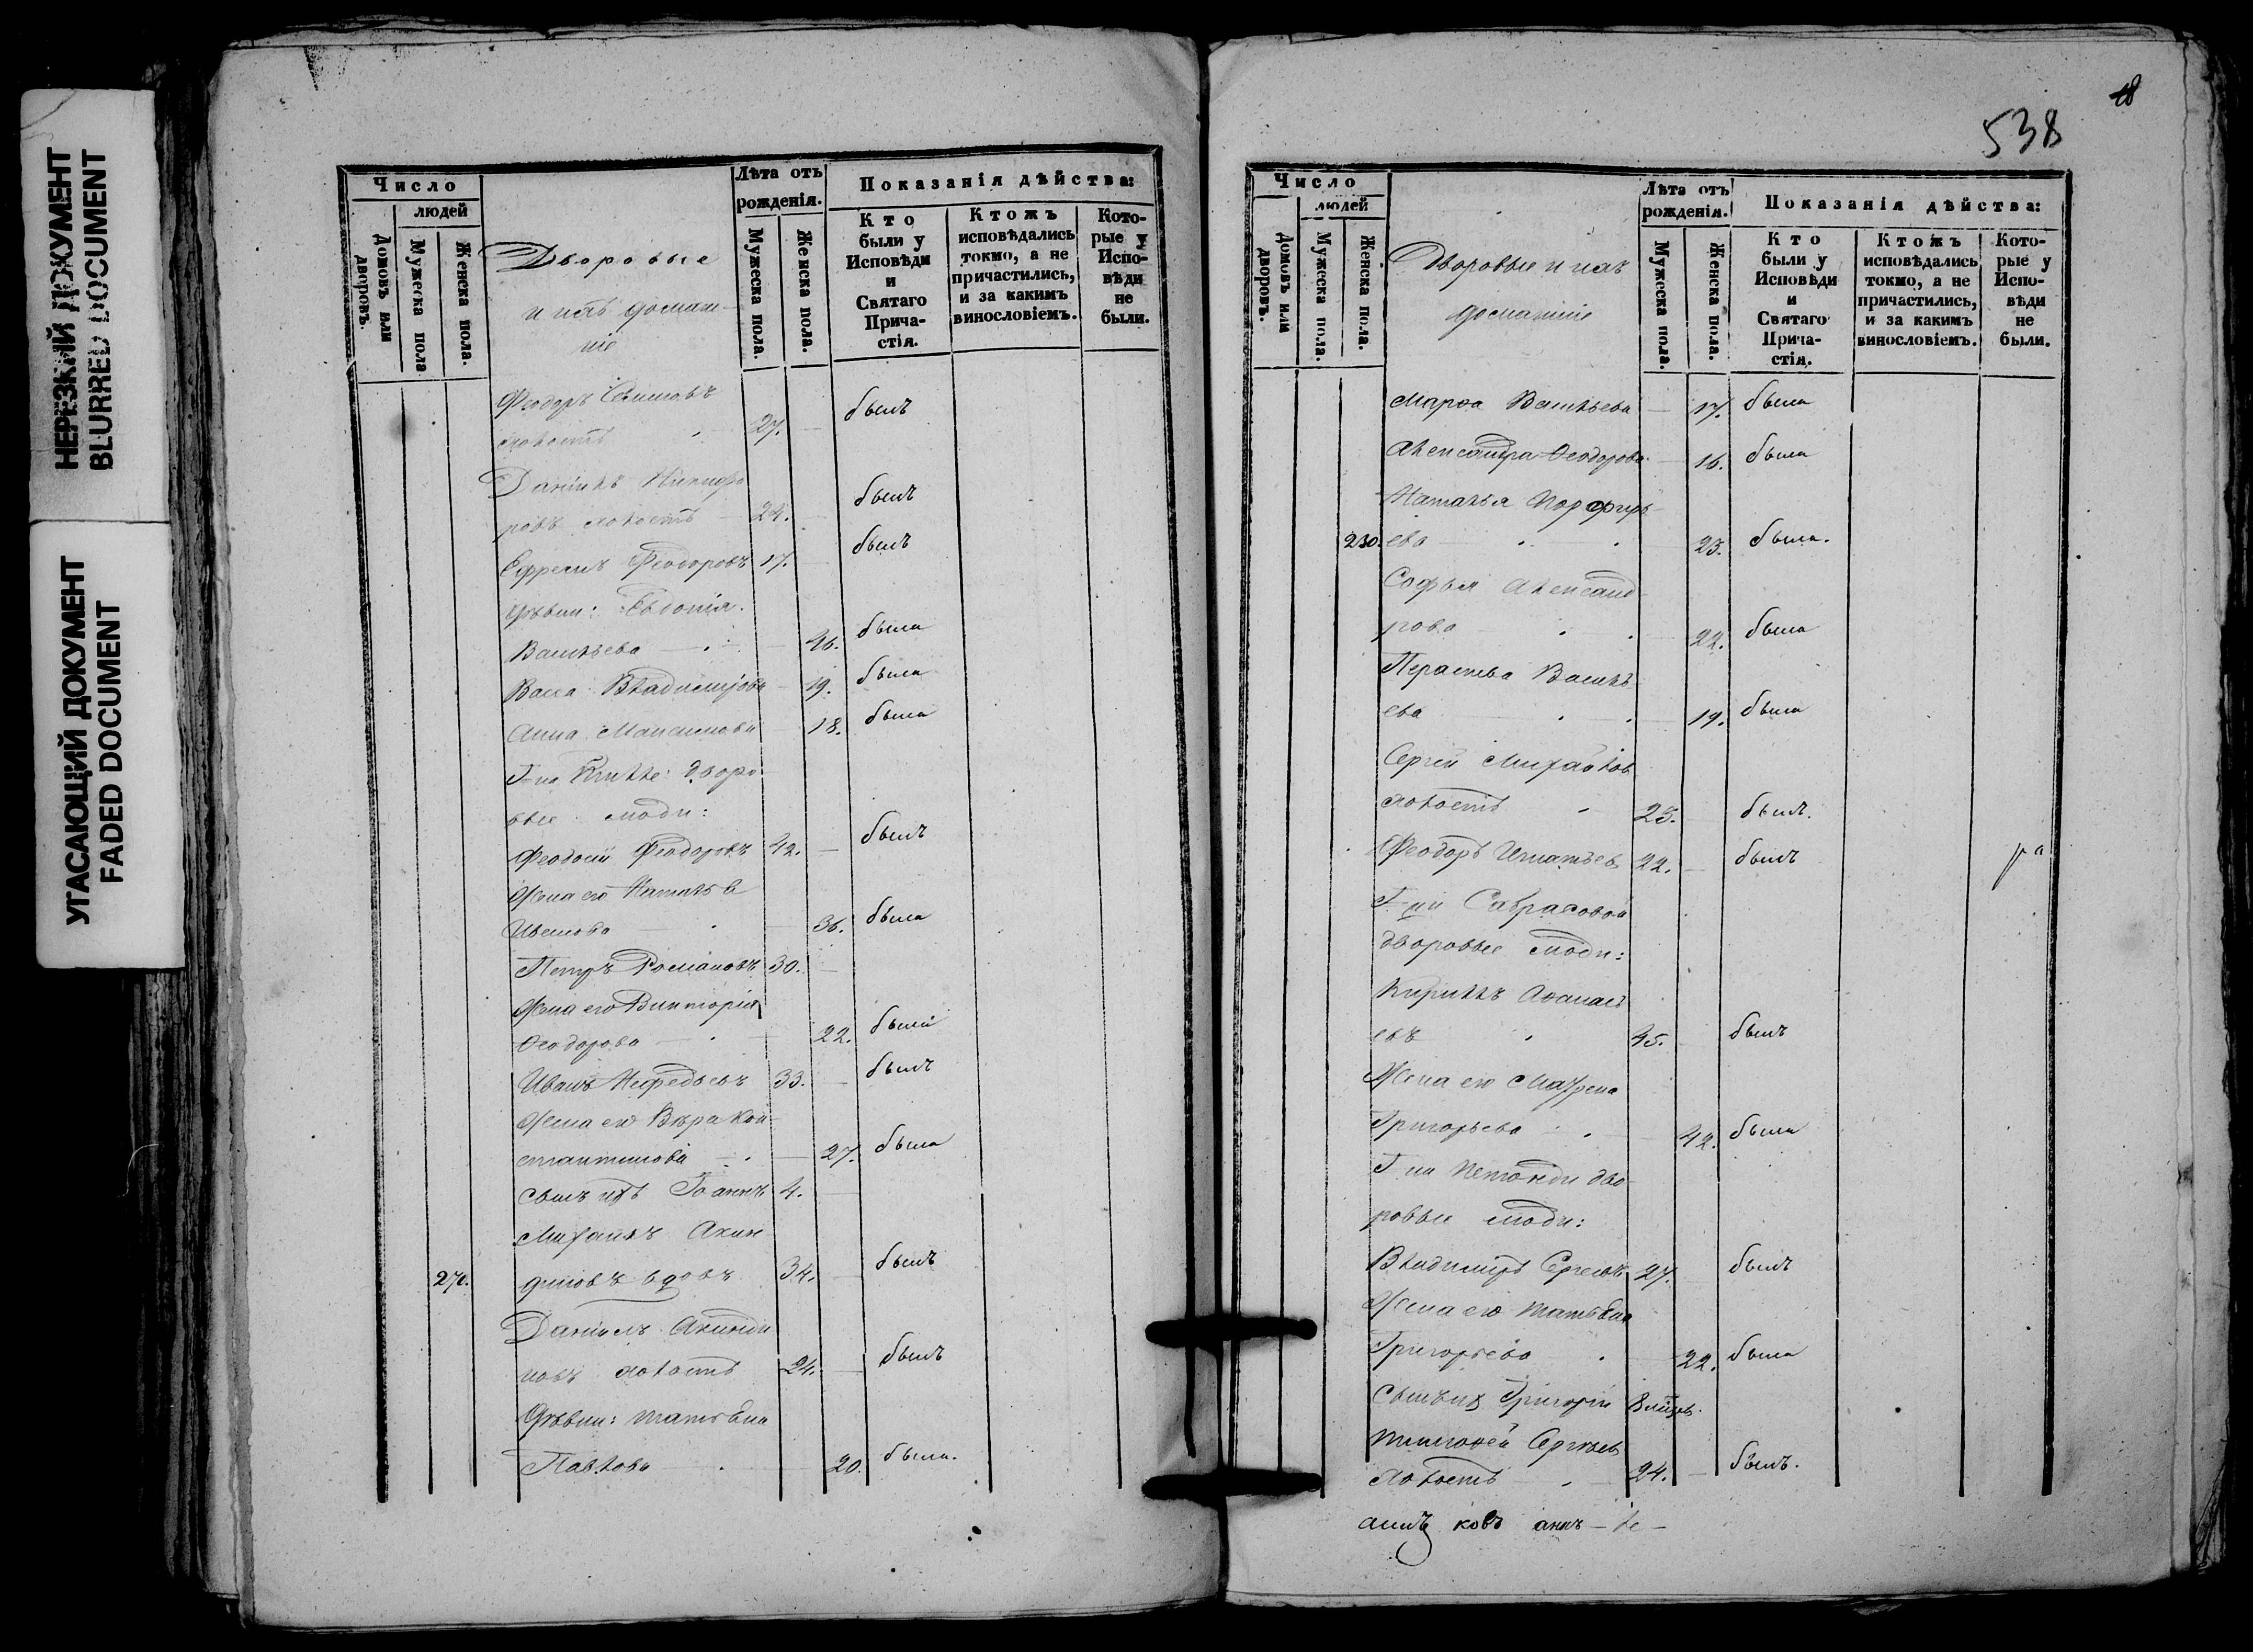 НЕРЕЗКИЙ ДОКУМЕНТ
BLURRED DOCUMENT
УГАСАЮЩИЙ ДОКУМЕНТ
FADED DOCUMENT
Число
людей
Домовъ или дворовъ.
Мужеска пола
Женска пола.
Дворовые
и ихъ домаш-
ніе
Лѣта отъ
рожденія.
Мужеска пола.
Женска пола.
Показанія дѣйства:
Кто
были у
Исповѣди
и
Святаго
Прича-
стія.
Ктожъ
исповѣдались
токмо, а не
причастились,
и за какимъ
винословіемъ.
Кото-
рые у
Испо-
вѣди
не
были.
Феодоръ
холостъ 27. былъ
Даніилъ Никифо
ровъ холостъ 24. былъ
Ефремъ Феодоровъ 17. былъ
дѣвки: Евдокія
Васильева 46. была
Васса Владимірова 19. была
Анна Максимова 18. была
Г-на дворо
вые люди:
Феодосій Феодоровъ 42. былъ
Жена его Наталья
Иванова 36. была
Петръ Романовъ 30.
Жена его Викторія
Ѳеодорова 22. была
Иванъ Нефедьевъ 33. былъ
Жена его Вѣра Кон-
стантинова 27. была
Сынъ ихъ Іоаннъ 4.
Михаилъ Акин
270. диновъ вдовъ 34. былъ
Даніилъ Акинди
новъ холостъ 24. былъ
Дѣвки: Татьяна
Павлова 20. была.
18
538
Число
людей
Домовъ или дворовъ.
Мужеска пола.
Женска пола.
Дворовые и ихъ
домашніе
Лѣта отъ
рожденія.
Мужеска пола.
Женска пола.
Показанія дѣйства:
Кто
были у
Исповѣди
и
Святаго
Прича-
стія.
Ктожъ
исповѣдались
токмо, а не
причастились,
и за какимъ
винословіемъ.
Кото-
рые у
Испо-
вѣди
не
были.
Марѳа Васильева 17. была
Александра Ѳеодорова 16. была
Наталья Порфирь
230. ева 23. была.
Софья Александ
рова 22. была
Парасева Василь
ева 19. была
Сергій Михайлов
холостъ 23. былъ.
Феодоръ Игнатьев 22. былъ
Г-жи Саврасовой
дворовые люди:
Кирилъ Аѳанась
евъ 45. былъ
Жена его Матрена
Григорьева 42. была
Г-на дво
ровые люди:
Владиміръ Сергеевъ 27. былъ
Жена его Татьяна
Григорьева 22. была
Сынъ ихъ Григорій 8 мѣсяц.
Тимофей Сергѣев
холостъ 24. былъ.